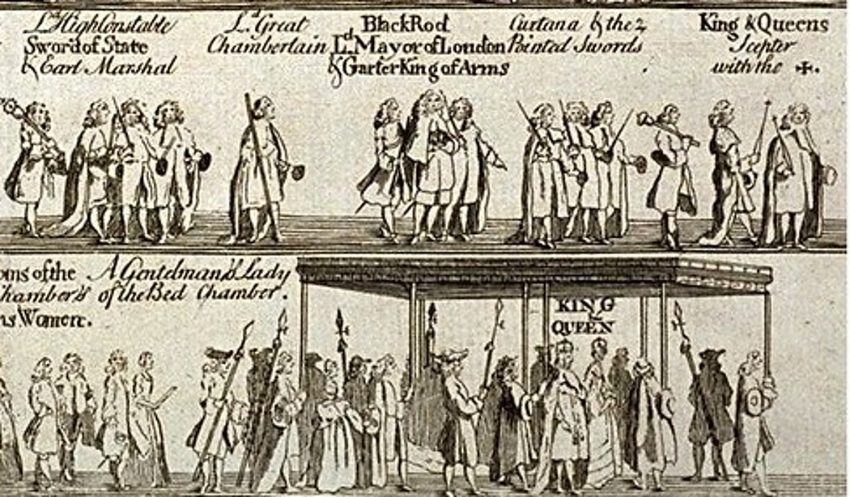 Ld. High Constable
Sword of State
& Earl Marshal
Ld. Great
Chamberlain
Black Rod
Ld. Mayor of London
& Garter King of Arms
Curtana & the 2
Pointed Swords
King & Queens
Scepter
with the ✠.
oms of the
Chamber's
ns Women.
A Gentelman's Lady
of the Bed Chamber.
KING
the
QUEEN